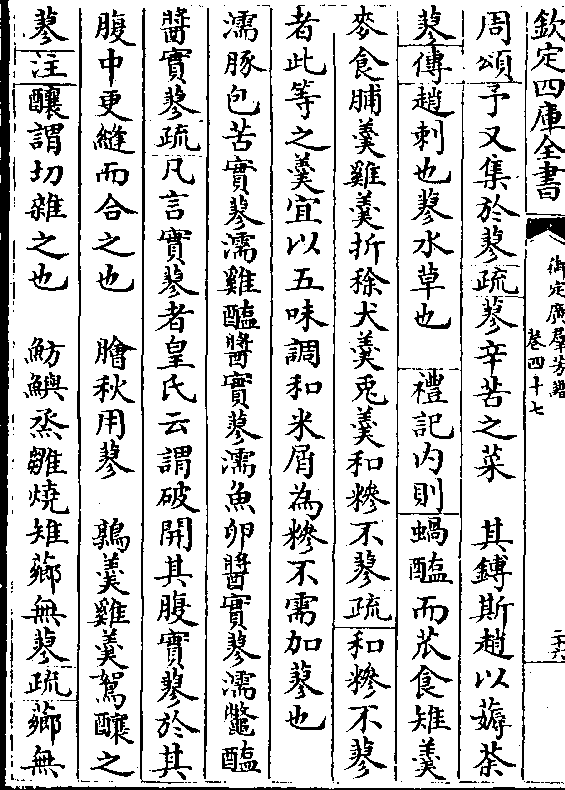 欽定四庫全書
御定廣羣芳譜
卷四十七
二十六
周頌予又集於蓼疏蓼辛苦之菜　其鎛斯趙以薅荼
蓼傳趙刺也蓼水草也　禮記內則蝸醢而苽食雉羹
麥食脯羹雞羹折稌犬羹兎羹和糝不蓼疏和糝不蓼
者此等之羹宜以五味調和米屑為糝不需加蓼也
濡豚包苦實蓼濡雞醢醬實蓼濡魚卵醬實蓼濡鼈醢
醬實蓼疏凡言實蓼者皇氏云謂破開其腹實蓼於其
腹中更縫而合之也　膾秋用蓼　鶉羹雞羹鴽釀之
蓼注釀謂切雜之也　魴鱮烝雛燒雉薌無蓼疏薌無